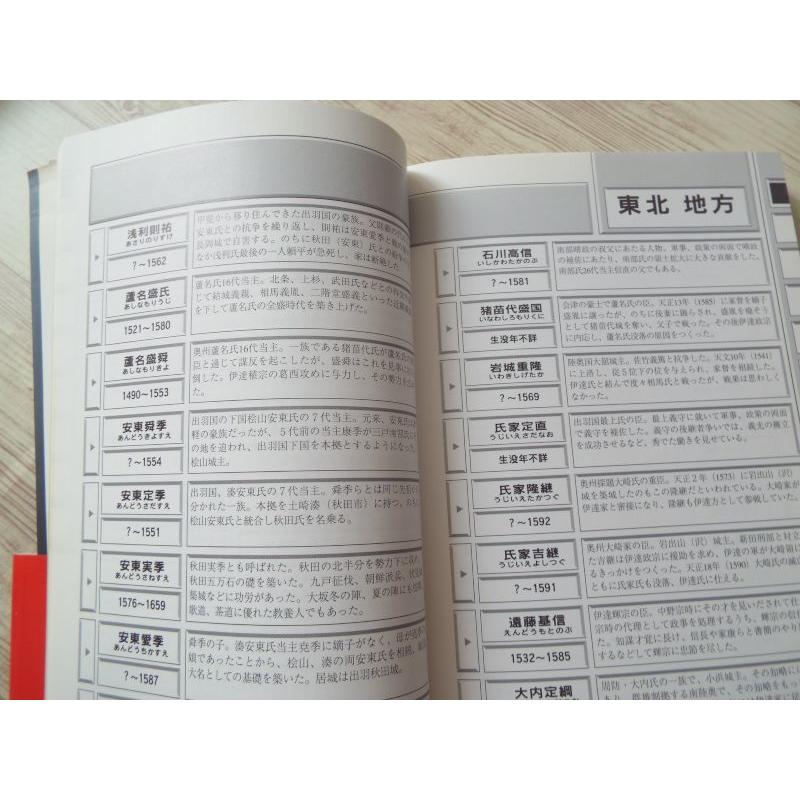 浅利則祐
あさりのりすけ
?～1562
甲斐から移り住んできた出羽国の豪族。父則頼の
安東氏との抗争を繰り返し、則祐は安東愛季と
長岡城で自害する。のちに秋田(安東)氏との争
なか浅利氏最後の一人頼平が急死し、家は断絶した。
蘆名盛氏
あしなもりうじ
1521～1580
蘆名氏16代当主。北条、上杉、武田氏などとの
じて結城義親、相馬義胤、二階堂盛義といった近隣
を下して蘆名氏の全盛時代を築き上げた。
蘆名盛舜
あしなもりきよ
1490～1553
奥州蘆名氏15代当主。一族である猪苗代氏が蘆名氏の
臣と通じて謀反を起こしたが、盛舜はこれを見事に
倒した。伊達稙宗の葛西攻めに与力し、その勢力を
た。
安東舜季
あんどうきよすえ
?～1554
出羽国の下国桧山安東氏の7代当主。元来、安東氏は
軽の豪族だったが、5代前の当主康季が三戸南部氏に
の地を追われ、出羽国下国を本拠とするようになった。
桧山城主。
安東定季
あんどうさだすえ
?～1551
出羽国、湊安東氏の7代当主。舜季らとは同じ先祖から
分かれた一族。本拠を土崎湊(秋田市)に持つ。のち
桧山安東氏と統合し秋田氏を名乗る。
安東実季
あんどうさねすえ
1576～1659
秋田実季とも呼ばれた。秋田の北半分を勢力下に収め、
秋田五万石の礎を築いた。九戸征伐、朝鮮派兵、伏見
築城などに功労があった。大坂冬の陣、夏の陣にも出陣。
歌道、茶道に優れた教養人でもあった。
安東愛季
あんどうちかすえ
?～1587
舜季の子。湊安東氏当主堯季に嫡子がなく、母が堯季の
娘であったことから、桧山、湊の両安東氏を相続、戦国
大名としての基礎を築いた。居城は出羽秋田城。
東北 地方
石川高信
いしかわたかのぶ
?～1581
南部晴政の叔父にあたる人物。軍事、政策の両面で晴政
の補佐にあたり、南部氏の領土拡大に大きな貢献をした。
南部氏26代当主信直の父でもある。
猪苗代盛国
いなわしろもりくに
生没年不詳
会津の豪士で蘆名氏の臣。天正13年(1585)に家督を嫡子
盛胤に譲ったが、のちに後妻に踊らされ、盛胤を廃そう
として猪苗代城を奪い、父子で戦った。その後伊達政宗
に内応し、蘆名氏没落の原因をつくった。
岩城重隆
いわきしげたか
?～1569
陸奥国大舘城主。佐竹義篤と抗争した。天文10年(1541)
に上洛し、従5位下の位を与えられ、家督を相続した。
伊達氏と結んで度々相馬氏と戦ったが、戦果は思わしく
なかった。
氏家定直
うじいえさだなお
生没年不詳
出羽国最上氏の臣。最上義守に就いて軍事、政策の両面
で義守を補佐した。義守の後継者争いでは、義光の擁立
を成功させるなど、秀でた働きを見せている。
氏家隆継
うじいえたかつぐ
?～1592
奥州探題大崎氏の重臣。天正2年(1573)に岩出山(沢)
城を築城したのもこの隆継だといわれている。大崎家が
伊達家と密接になり、この隆継も伊達方として参戦していた。
氏家吉継
うじいえよしつぐ
?～1591
奥州大崎家の臣。岩出山(沢)城主。新田刑部と対立
た吉継は伊達政宗に援助を求め、伊達の軍が大崎領
るきっかけをつくった。天正18年(1590)大崎氏の滅
ともに氏家氏も没落、伊達氏に仕える。
遠藤基信
えんどうもとのぶ
1532～1585
伊達輝宗の臣。中野宗時にその才を見いだされて仕
宗時の代理として政事を処理するうち、輝宗の信任
た。知謀才覚に長け、信長や家康らと書簡のやり
するなどして輝宗に忠節を尽した。
大内定綱
周防・大内氏の一族で、小浜城主。その知略をも